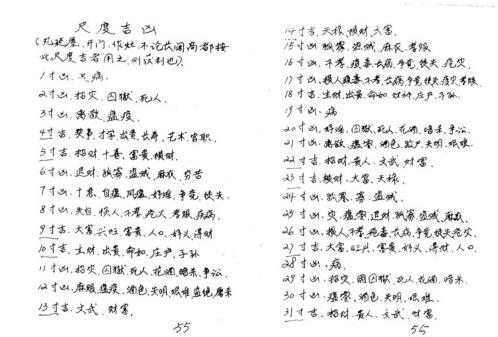 尺度吉凶
(凡起屋、开门、作灶、不论长阔高都按
此尺度吉者用之，则获利也)。
1寸凶、灾病。
2寸凶、招灾、囚狱、死人。
3寸凶、离散、瘟疫。
4寸吉、才学、出贵、长寿、艺术、官职。
5寸吉、招财、十喜、富贵、横财。
6寸凶、退财、孤寡、盗贼、麻衣、劳苦
7寸凶、自瘟、风瘟、奸淫、争竞、快失。
8寸凶、失自、横人、不孝、疮灾、孝服、疾病。
9寸吉、大富、兴旺、富贵、人口、好义、得财
10寸吉、生财、出贵、命如、庄户、子孙
11寸凶、招灾、囚狱、死人、花酒、暗来、争讼。
12寸凶、麻服、瘟疫、酒色、失明、艰难
13寸吉、文武、财富。
55
14寸吉、天禄、横财、大富。
15寸凶、孤寡、盗贼、麻衣、孝服
16寸凶、不孝、瘟毒、长病、争竞、快失、疮灾。
17寸凶、损人、瘟毒、不孝、长病、争竞、快失
18寸吉、生财、出贵、命如、财神、庄户、子孙
19寸凶、病
20寸凶、奸淫、囚狱、死人、花酒、暗来、争讼。
21寸凶、离散、瘟寡、酒色、失明、艰难
22寸吉、招财、贵人、文武、财富。
23寸吉、横财、大富、天禄。
24寸凶、孤寡、盗贼。
25寸凶、灾、瘟寡、退财、孤寡、盗贼、麻衣
26寸凶、损人、不孝、瘟毒、长病、争竞、快失、疮灾
27寸吉、大富、旺兴、富贵、好义、得财、人口。
28寸凶、病。
29寸凶、招灾、囚狱、死人、花酒、暗来。
30寸凶、瘟寡、酒色、失明、艰难。
31寸吉、招财、贵人、文武、财富
55